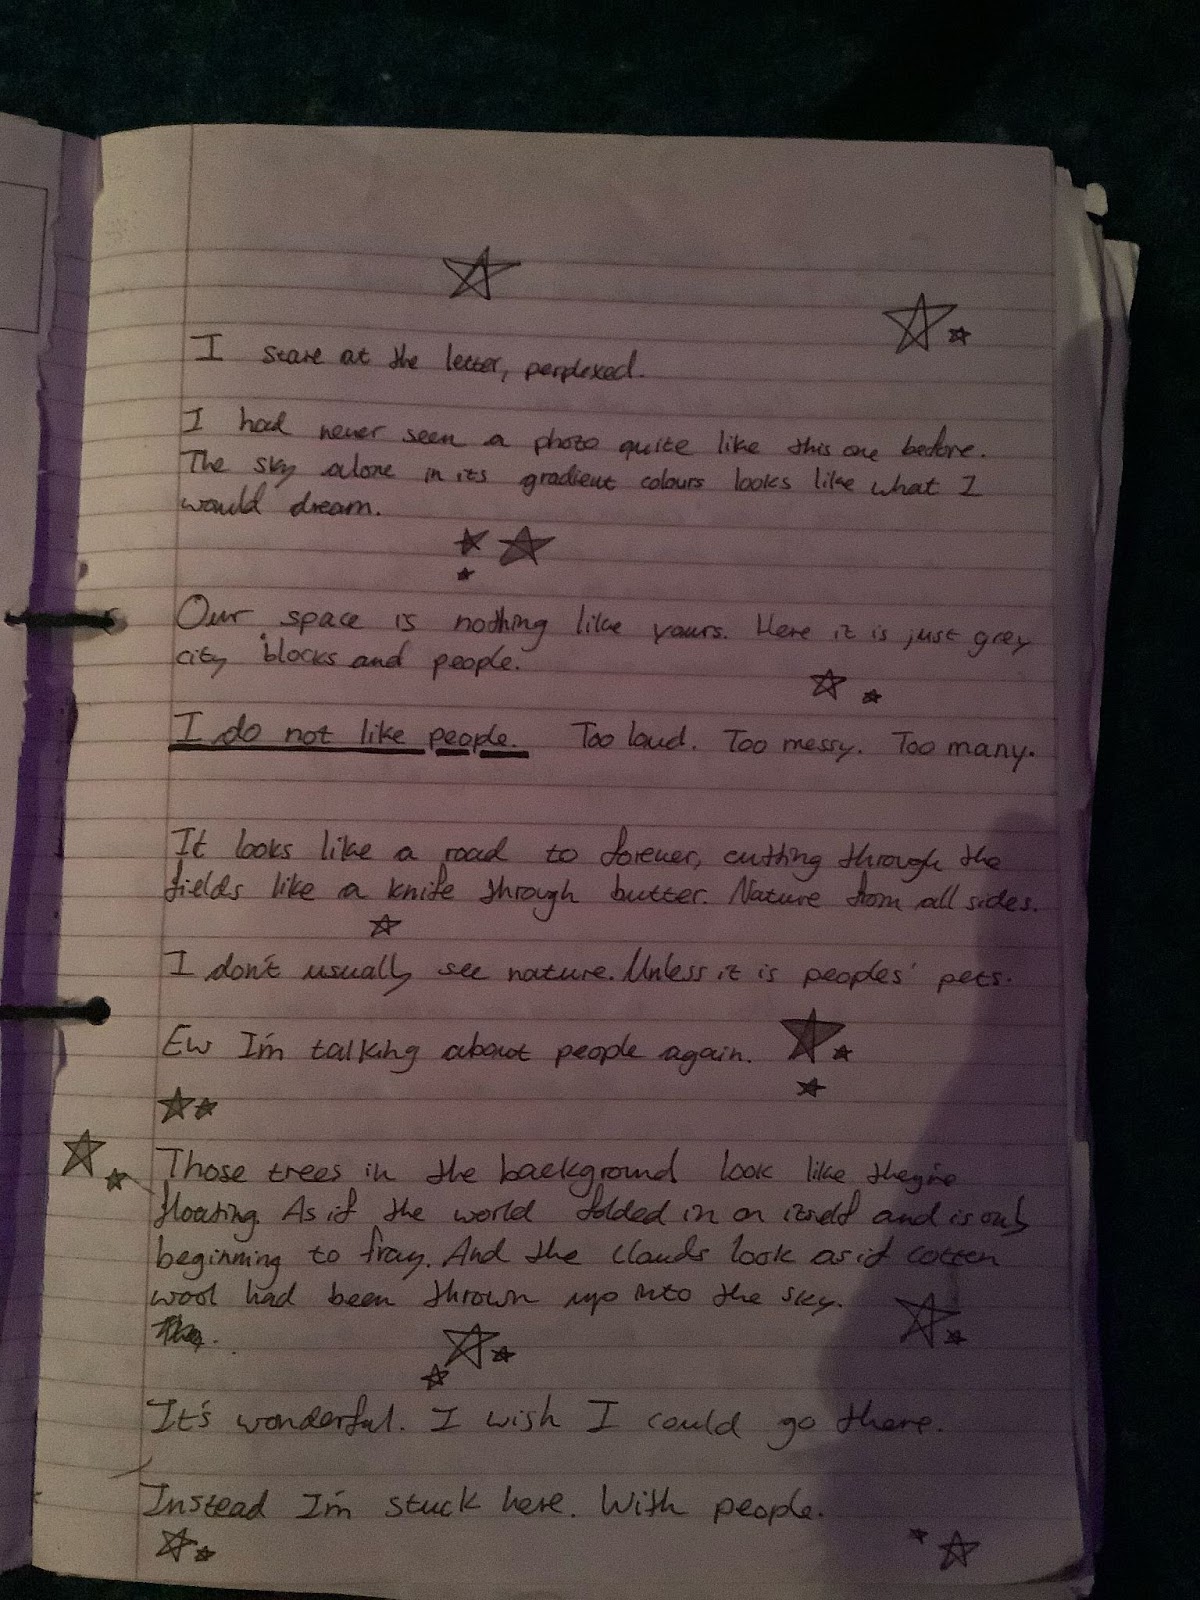 I stare at the letter, perplexed.
I had never seen a photo quite like this one before.
The sky alone in its gradient colours looks like what I
would dream.
Our space is nothing like yours. Here it is just grey
city blocks and people.
I do not like people. Too loud. Too messy. Too many.
It looks like a road to forever, cutting through the
fields like a knife through butter. Nature from all sides.
I don't usually see nature. Unless it is peoples' pets.
Ew I'm talking about people again.
Those trees in the background look like they're
floating. As if the world folded in on itself and is only
beginning to fray. And the clouds look as if cotten
wool had been thrown up into the sky.
It's wonderful. I wish I could go there.
Instead I'm stuck here. With people.